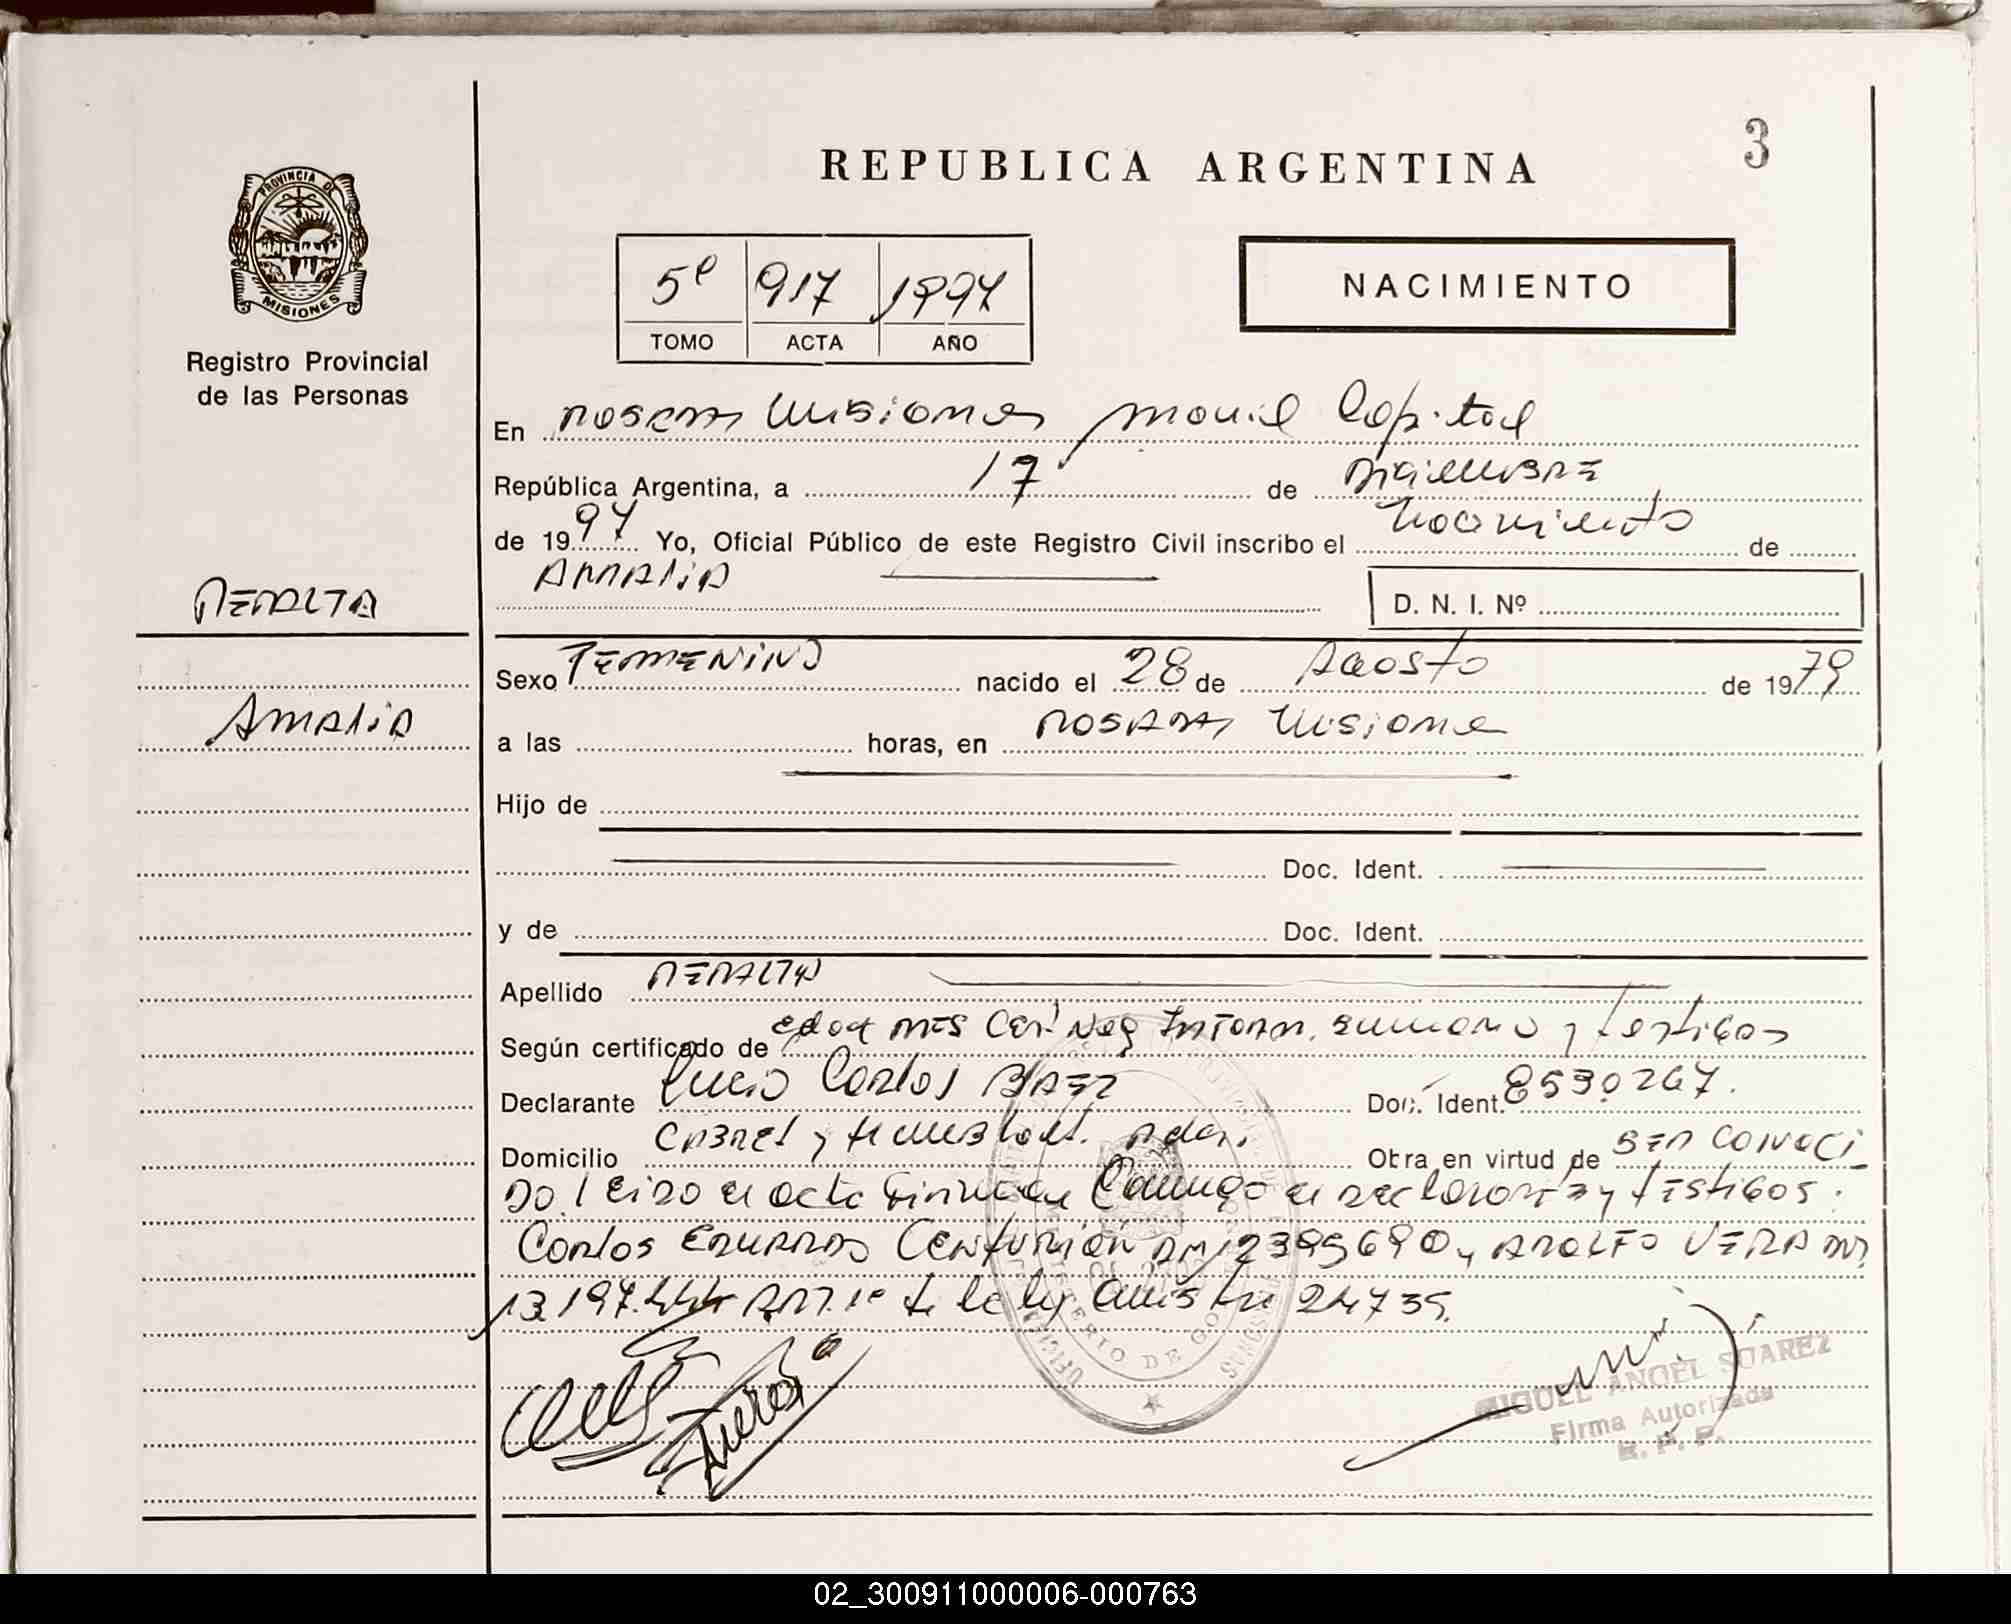 REPUBLICA ARGENTINA
3
PROVINCIA DE
MISIONES
Registro Provincial
de las Personas
5º 917 1997
TOMO ACTA AÑO
NACIMIENTO
En Posadas Misiones movil Capital
República Argentina, a 17 de Diciembre
de 1997 Yo, Oficial Público de este Registro Civil inscribo el Nacimiento de
AMALIA
D. N. I. Nº
PERALTA
Sexo FEMENINO nacido el 28 de Agosto de 1979
AMALIA
a las horas, en POSADAS Misiones
Hijo de
Doc. Ident.
y de Doc. Ident.
Apellido PERALTA
Según certificado de Neg Inform. sumaria y testigos
Declarante Lucio Carlos BAEZ Doc. Ident. 8530267.
Domicilio CABRED y Pdas. Obra en virtud de SER CONOCI
DO. Leido el acta firman Conmigo el declarante y TESTIGOS:
Carlos EDUARDO CENTURION y ADOLFO VERA
13.197.444 ART. 1º de la ley 24735.
MINISTERIO DE GO
MIGUEL ANGEL SUAREZ
Firma Autorizada
R. P. P.
02_300911000006-000763